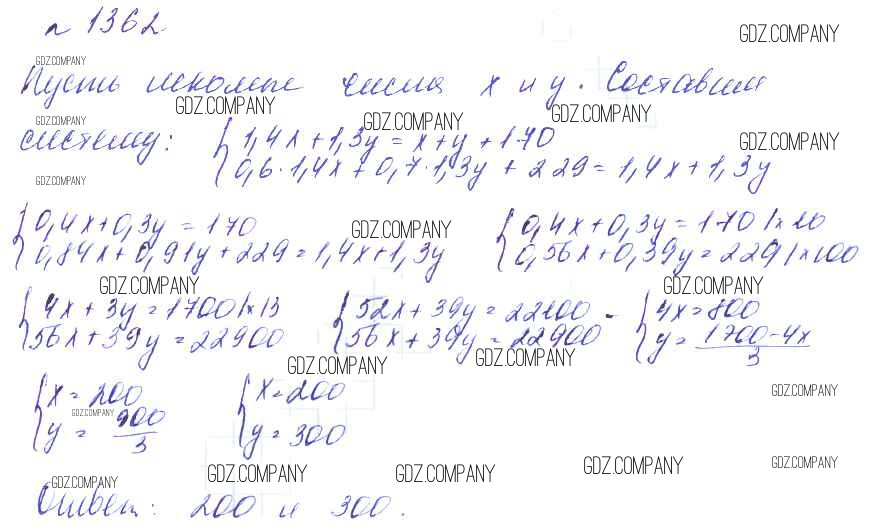 № 1362.
GDZ.COMPANY
GDZ.COMPANY
Пусть искомые числа x и y. Составим
GDZ.COMPANY GDZ.COMPANY GDZ.COMPANY GDZ.COMPANY GDZ.COMPANY
систему: { 1,4x + 1,3y = x + y + 170
0,6·1,4x + 0,7·1,3y + 229 = 1,4x + 1,3y
GDZ.COMPANY
{ 0,4x + 0,3y = 170 { 0,4x + 0,3y = 170 |×10
GDZ.COMPANY
0,84x + 0,91y + 229 = 1,4x + 1,3y 0,56x + 0,39y = 229 |×100
GDZ.COMPANY GDZ.COMPANY
{ 4x + 3y = 1700 |×13 { 52x + 39y = 22100 - { 4x = 800
56x + 39y = 22900 56x + 39y = 22900 y = (1700 - 4x)/3
GDZ.COMPANY GDZ.COMPANY
{ x = 200 { x = 200
GDZ.COMPANY GDZ.COMPANY
y = 900/3 y = 300
GDZ.COMPANY GDZ.COMPANY GDZ.COMPANY GDZ.COMPANY GDZ.COMPANY
Ответ: 200 и 300.